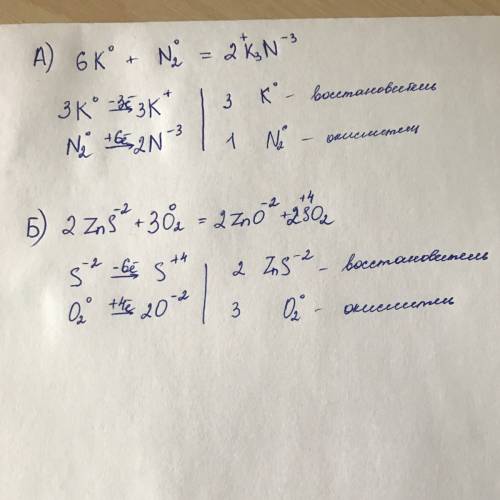 А) 6K⁰ + N₂⁰ = 2K₃⁺N⁻³
3K⁰ –3ē→ 3K⁺ | 3 K⁰ – восстановитель
N₂⁰ +6ē→ 2N⁻³ | 1 N₂⁰ – окислитель
Б) 2ZnS⁻² + 3O₂⁰ = 2ZnO⁻² + 2S⁺⁴O₂
S⁻² –6ē→ S⁺⁴ | 2 ZnS⁻² – восстановитель
O₂⁰ +4ē→ 2O⁻² | 3 O₂⁰ – окислитель